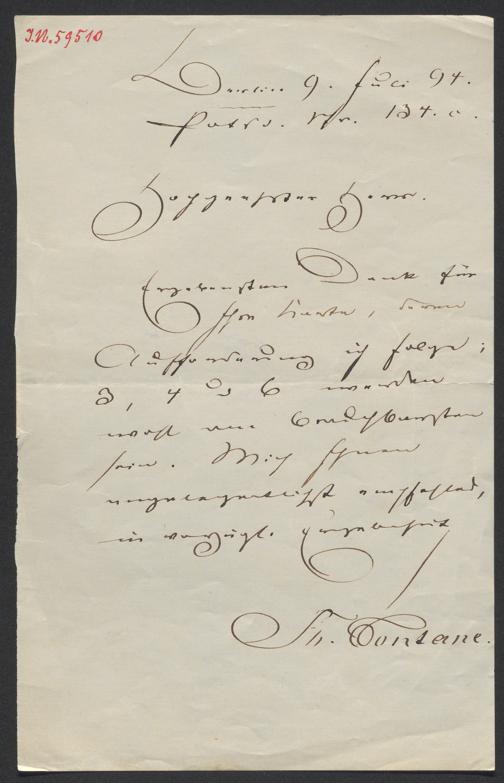 I.N. 59510
Berlin 9. Juli 94.
Potsd. Str. 134. c.
Hochgeehrter Herr.
Ergebensten Dank für
Ihre Karte, deren
Aufforderung ich folge;
3, 4 u 6 werden
wohl am brauchbarsten
sein. Mich Ihnen
angelegentlichst empfehlend,
in vorzügl. Ergebenheit
Th. Fontane.